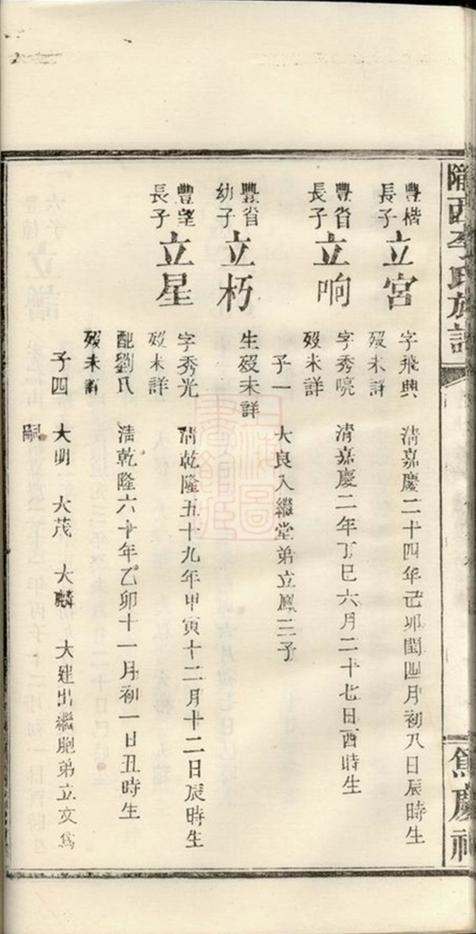 隴西李氏族譜
篤慶祠
豐楷長子 立宮 字飛興 清嘉慶二十四年己卯閏四月初八日辰時生
歿未詳
豐省長子 立响 字秀喨 清嘉慶二年丁巳六月二十七日酉時生
歿未詳
子一 大良入繼堂弟立鳳三子
豐省幼子 立朽 生歿未詳
豐望長子 立星 字秀光 清乾隆五十九年甲寅十二月十二日辰時生
歿未詳
配劉氏 清乾隆六十年乙卯十一月初一日丑時生
歿未詳
子四 大明 大茂 大麟 大建出繼胞弟立文為
嗣
上海圖書館藏